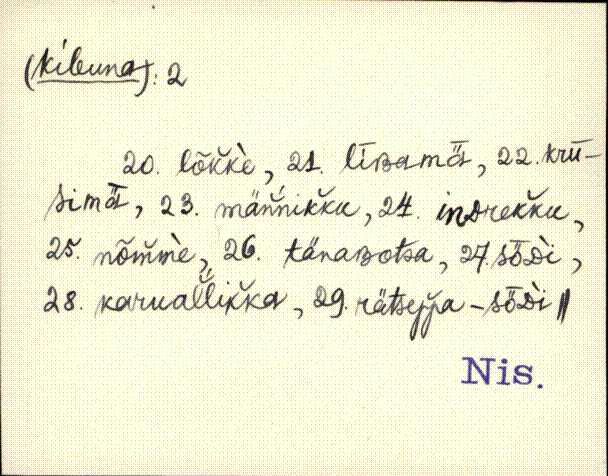 (kibuna): 2
20. lõk̆k̀e, 21. līʙamǟ, 22. krǖ-
simǟ, 23. männ̆ikk̆u, 24. inᴅrekk̆u,
25. nõm̆m̀e, 26. tänaʙotsa, 27. sȫᴅ̀i,
28. karuall̆ikk̆a, 29. rätsepp̆a - sȫᴅ̀i ‖
Nis.